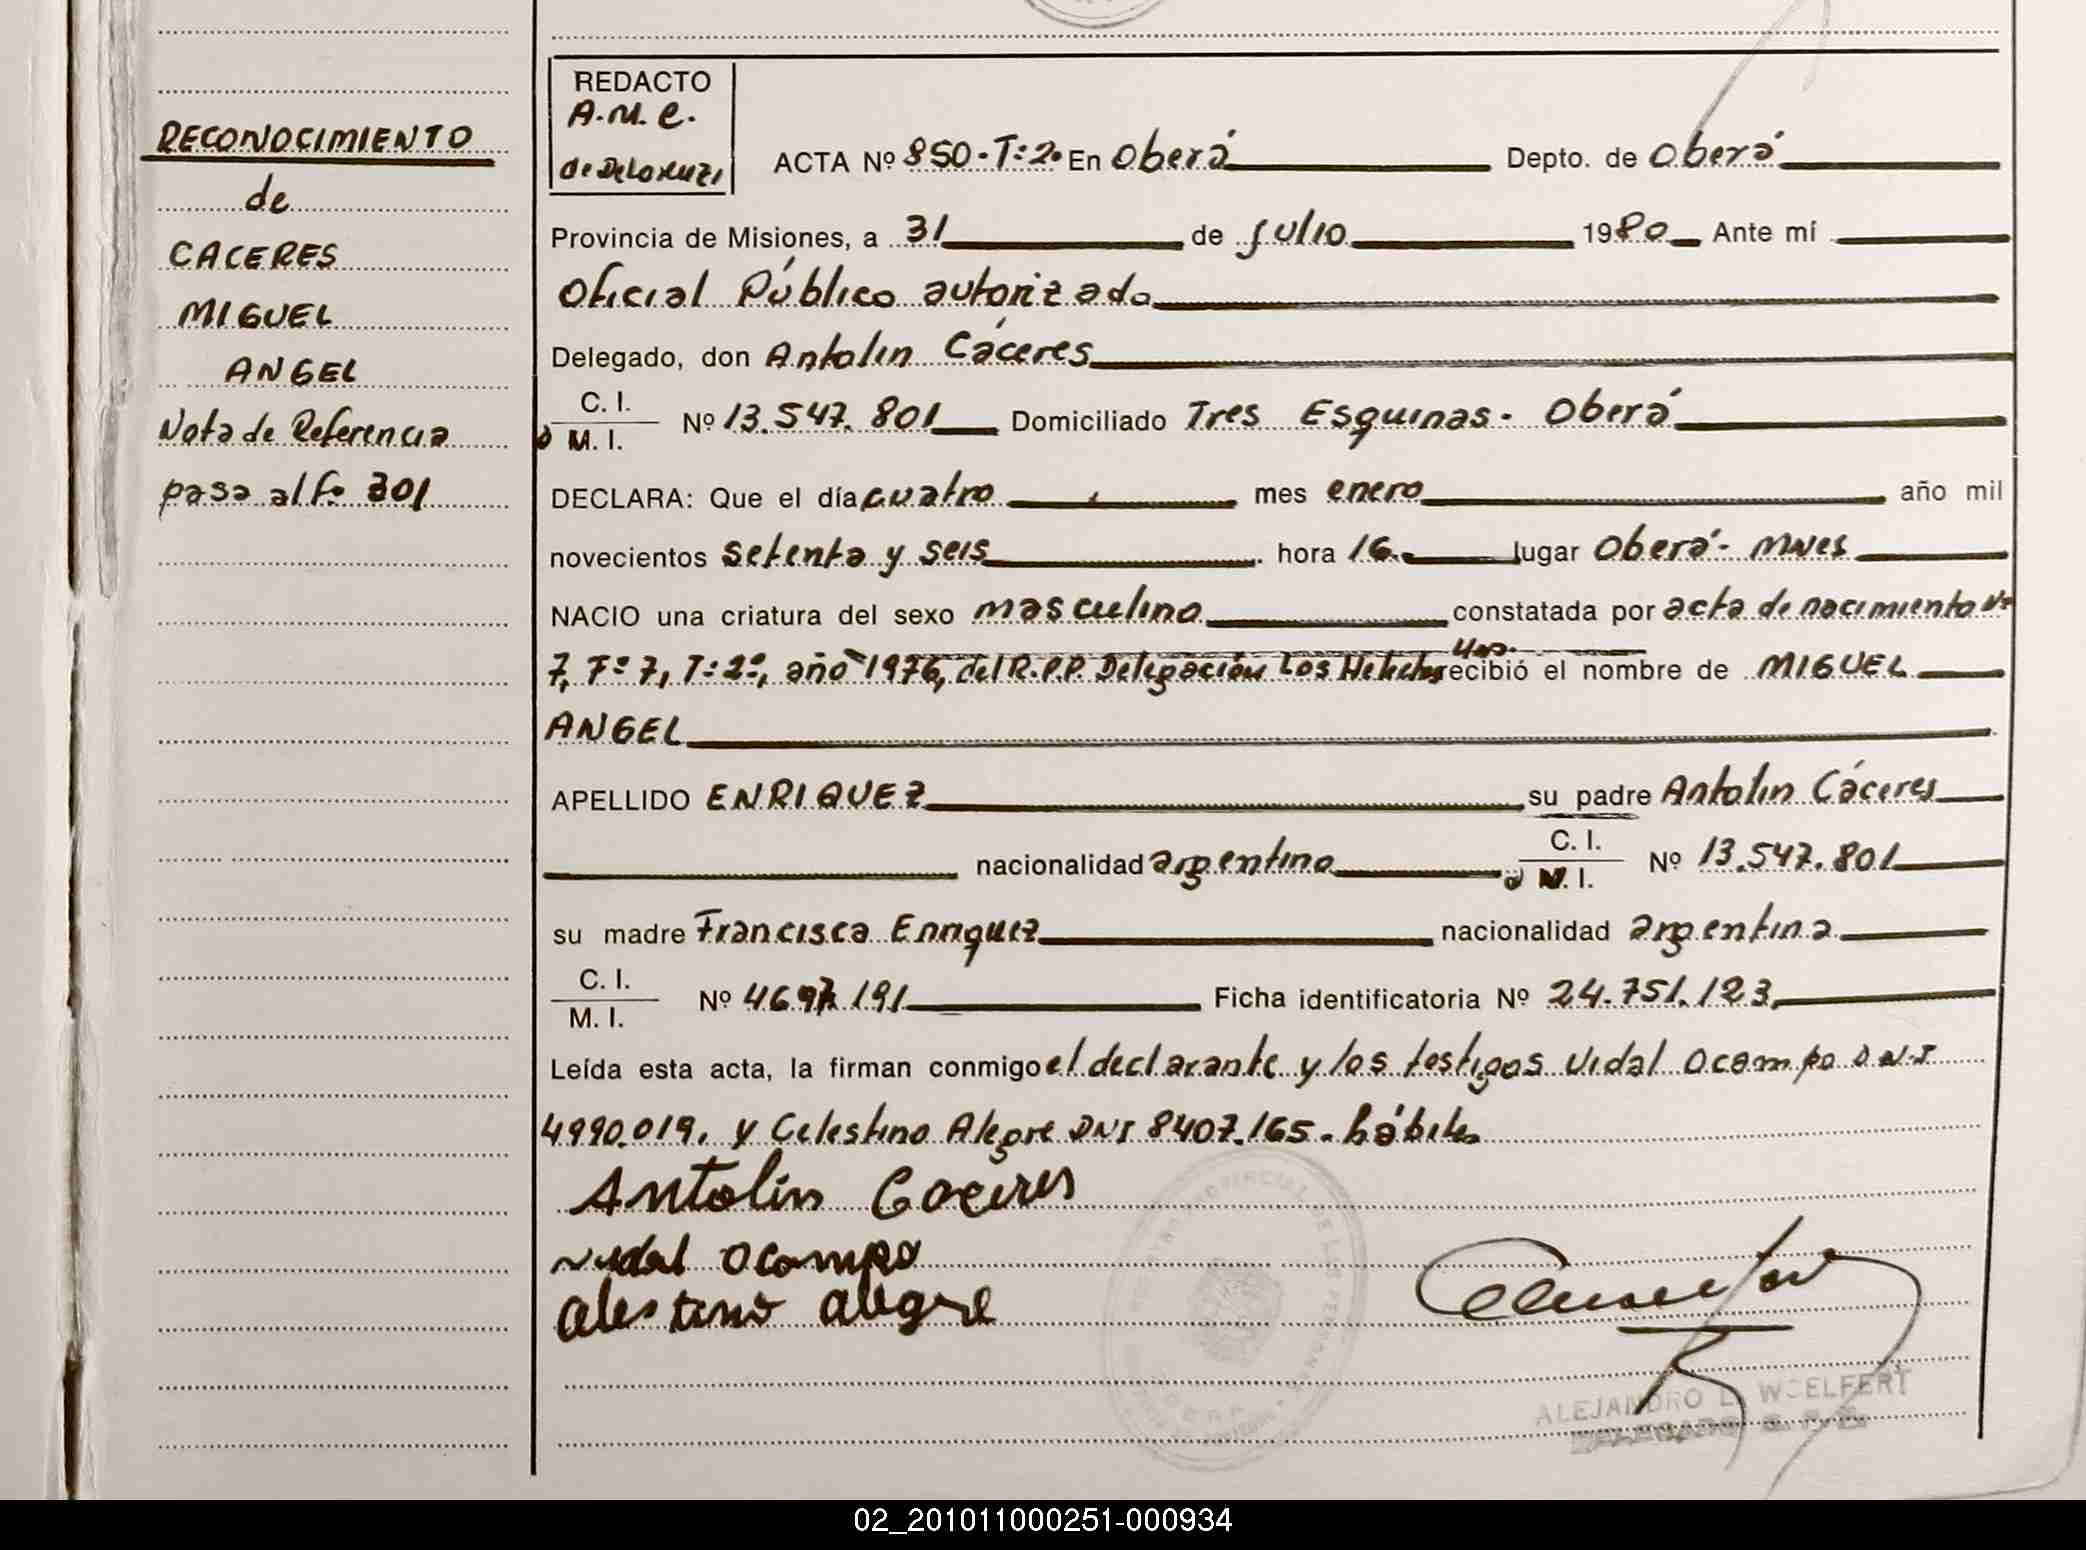 RECONOCIMIENTO
de
CACERES
MIGUEL
ANGEL
Nota de Referencia
pasa al Fº 301
REDACTO
A.M.C.
de DeLorenzi
ACTA Nº 850-T:2º En Oberá Depto. de Oberá
Provincia de Misiones, a 31 de julio 1980 Ante mí
Oficial Público autorizado
Delegado, don Antolin Cáceres
C. I.
M. I. Nº 13.547.801 Domiciliado Tres Esquinas - Oberá
DECLARA: Que el día cuatro mes enero año mil
novecientos setenta y seis hora 16 lugar Oberá - Mnes
NACIO una criatura del sexo masculino constatada por acta de nacimiento Nº
7, Fº 7, T:2º, año 1976, del R.P.P. Delegación Los Helechos recibió el nombre de MIGUEL
ANGEL
APELLIDO ENRIQUEZ su padre Antolin Cáceres
nacionalidad argentina C. I.
M. I. Nº 13.547.801
su madre Francisca Enriquez nacionalidad argentina
C. I.
M. I. Nº 4697.191 Ficha identificatoria Nº 24.751.123
Leída esta acta, la firman conmigo el declarante y los testigos Vidal Ocampo D.N.I
4990.019. y Celestino Alegre DNI 8407.165. hábiles
Antolin Caceres
Vidal Ocampo
Celestino Alegre
ALEJANDRO L. WOELFERT
DELEGADO
02_201011000251-000934